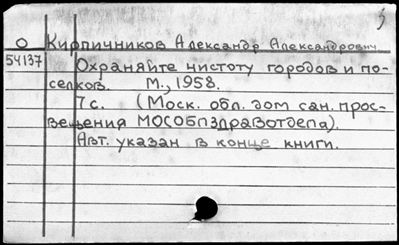 О Кирпичников Александр Александрович
54137 Охраняйте чистоту городов и по-
селков. М., 1958.
7 с. (Моск. обл. дом сан. прос-
вещения МОСОБЛЗДРАВОТДЕЛА).
Авт. указан в конце книги.